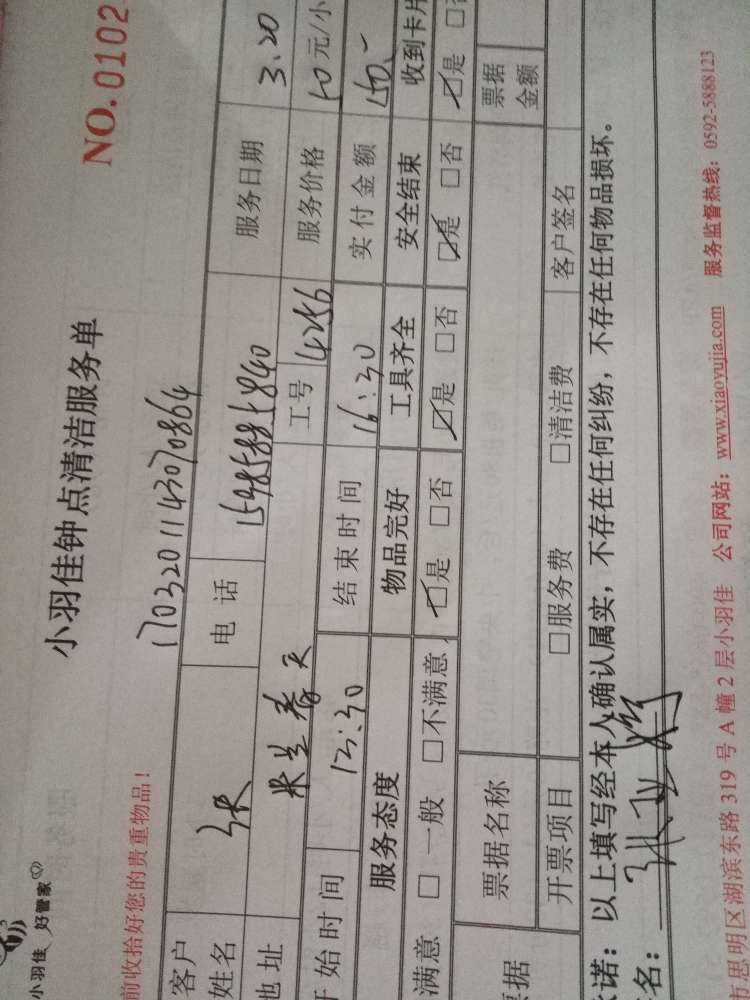 小羽佳 好管家
小羽佳钟点清洁服务单
NO.0102
前收拾好您的贵重物品！
1703201143070864
客户姓名 张 电话 15985885840 服务日期 3.20
地址 工号 4256 服务价格 50元/小
开始时间 13:30 结束时间 16:30 实付金额 150.-
服务态度 物品完好 工具齐全 安全结束 收到卡片
满意 □一般 □不满意 ☑是 □否 ☑是 □否 ☑是 □否 ☑是 □否
票据名称 票据金额
据 开票项目 □服务费 □清洁费 客户签名
诺：以上填写经本人确认属实，不存在任何纠纷，不存在任何物品损坏。
名：
市思明区湖滨东路319号A幢2层小羽佳 公司网站：www.xiaoyujia.com 服务监督热线：0592-5888123